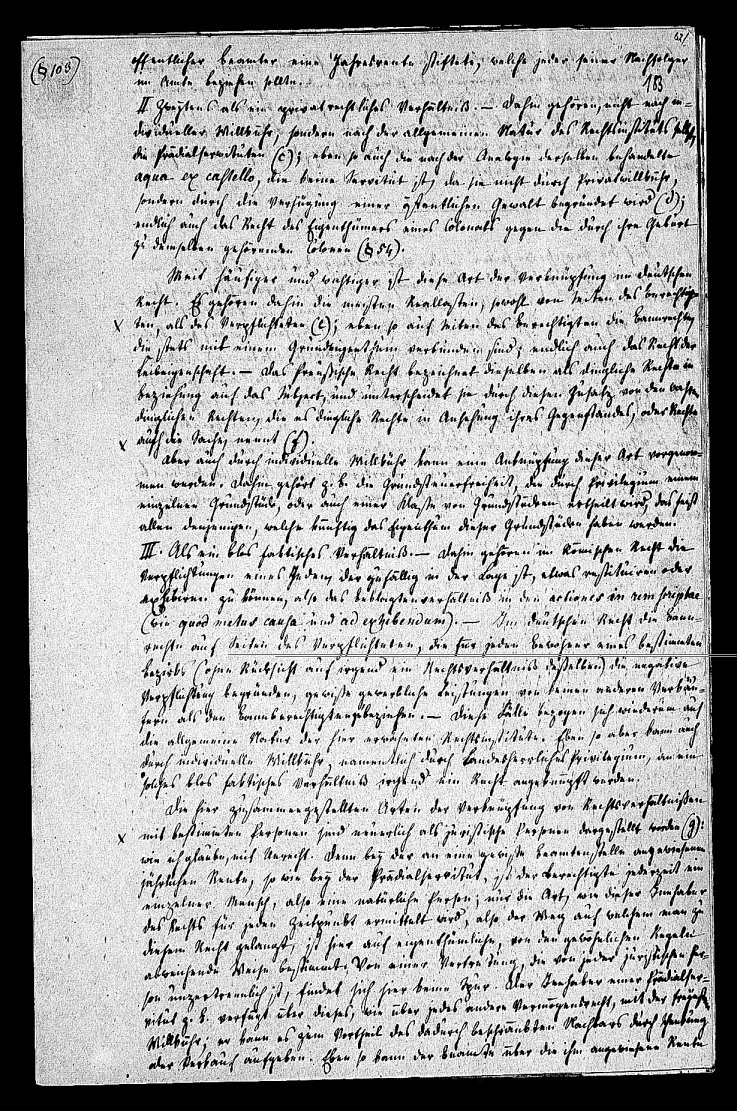 (§ 103)
öffentlicher Beamter eine Jahresrente stiftete, welche jeder seiner Nachfolger
im Amte beziehen sollte.
183
II. Zweytens als ein privatrechtliches Verhältniß. — Dahin gehören, nicht nach in-
dividueller Willkühr, sondern nach der allgemeinen Natur des Rechtsinstituts selbst,
die Prädialservituten (c); eben so auch die nach der Analogie derselben behandelte
aqua ex castello, die keine Servitut ist, da sie nicht durch Privatwillkühr,
sondern durch die Verfügung einer öffentlichen Gewalt begründet wird (d);
endlich auch das Recht des Eigenthümers eines Colonats gegen die durch ihre Geburt
zu demselben gehörenden Colonen (§ 54).
Weit häufiger und wichtiger ist diese Art der Verknüpfung im deutschen
Recht. Es gehören dahin die meisten Reallasten, sowohl von Seiten des Berechtig-
ten, als des Verpflichteten (e); eben so auf Seiten des Berechtigten die Bannrechte,
die stets mit einem Grundeigenthum verbunden sind; endlich auch das Recht der
Leibeigenschaft. — Das Preußische Recht bezeichnet dieselben als dingliche Rechte in
Beziehung auf das Subject, und unterscheidet sie durch diesen Zusatz von den
dinglichen Rechten, die es dingliche Rechte in Ansehung ihres Gegenstandes, oder Rechte
auf die Sache, nennt (f).
Aber auch durch individuelle Willkühr kann eine Anknüpfung dieser Art vorgenom-
men werden. Dahin gehört z. B. die Grundsteuerfreiheit, die durch Privilegium einem
einzelnen Grundstück, oder auch einer Klasse von Grundstücken ertheilt wird, das heißt
allen denjenigen, welche künftig das Eigenthum dieser Grundstücke haben werden.
III. Als ein blos faktisches Verhältniß. — Dahin gehören im Römischen Recht die
Verpflichtungen eines Jeden, der zufällig in der Lage ist, etwas restituiren oder
exhibiren zu können, also das Beklagtenverhältniß in den actiones in rem scriptae
(wie quod metus causa und ad exhibendum). — Im deutschen Recht die Bann-
rechte auf Seiten des Verpflichteten, die für jeden Bewohner eines bestimmten
Bezirks (ohne Rücksicht auf irgend ein Rechtsverhältniß desselben) die negative
Verpflichtung begründen, gewisse gewerbliche Leistungen von keinem anderen Verkäu-
fern als dem Bannberechtigten zu beziehen. — Diese Fälle bezogen sich wiederum auf
die allgemeine Natur der hier erwähnten Rechtsinstitute. Eben so aber kann auch
durch individuelle Willkühr, namentlich durch landesherrliches Privilegium, an ein
solches blos faktisches Verhältniß irgend ein Recht angeknüpft werden.
Die hier zusammengestellten Arten der Verknüpfung von Rechtsverhältnissen
mit bestimmten Personen sind neuerlich als juristische Personen dargestellt worden (g):
wie ich glaube, mit Unrecht. Denn bey der an eine gewisse Beamtenstelle angewiesenen
jährlichen Rente, so wie bey der Prädialservitut, ist der Berechtigte jederzeit ein
einzelner Mensch, also eine natürliche Person; nur die Art, wie dieser Inhaber
des Rechts für jeden Zeitpunkt ermittelt wird, also der Weg auf welchem man zu
diesem Recht gelangt, ist hier auf eigenthümliche, von den gewöhnlichen Regeln
abweichende Weise bestimmt. Von einer Vertretung, die von jeder juristischen Per-
son unzertrennlich ist, findet sich hier keine Spur. Der Inhaber einer Prädialser-
vitut z. B. verfügt über dieses, wie über jedes andere Vermögensrecht, mit der freyesten
Willkühr; er kann es zum Vortheil des dadurch beschränkten Nachbars durch Schenkung
oder Verkauf aufgeben. Eben so kann der Beamte über die ihm angewiesene Rente